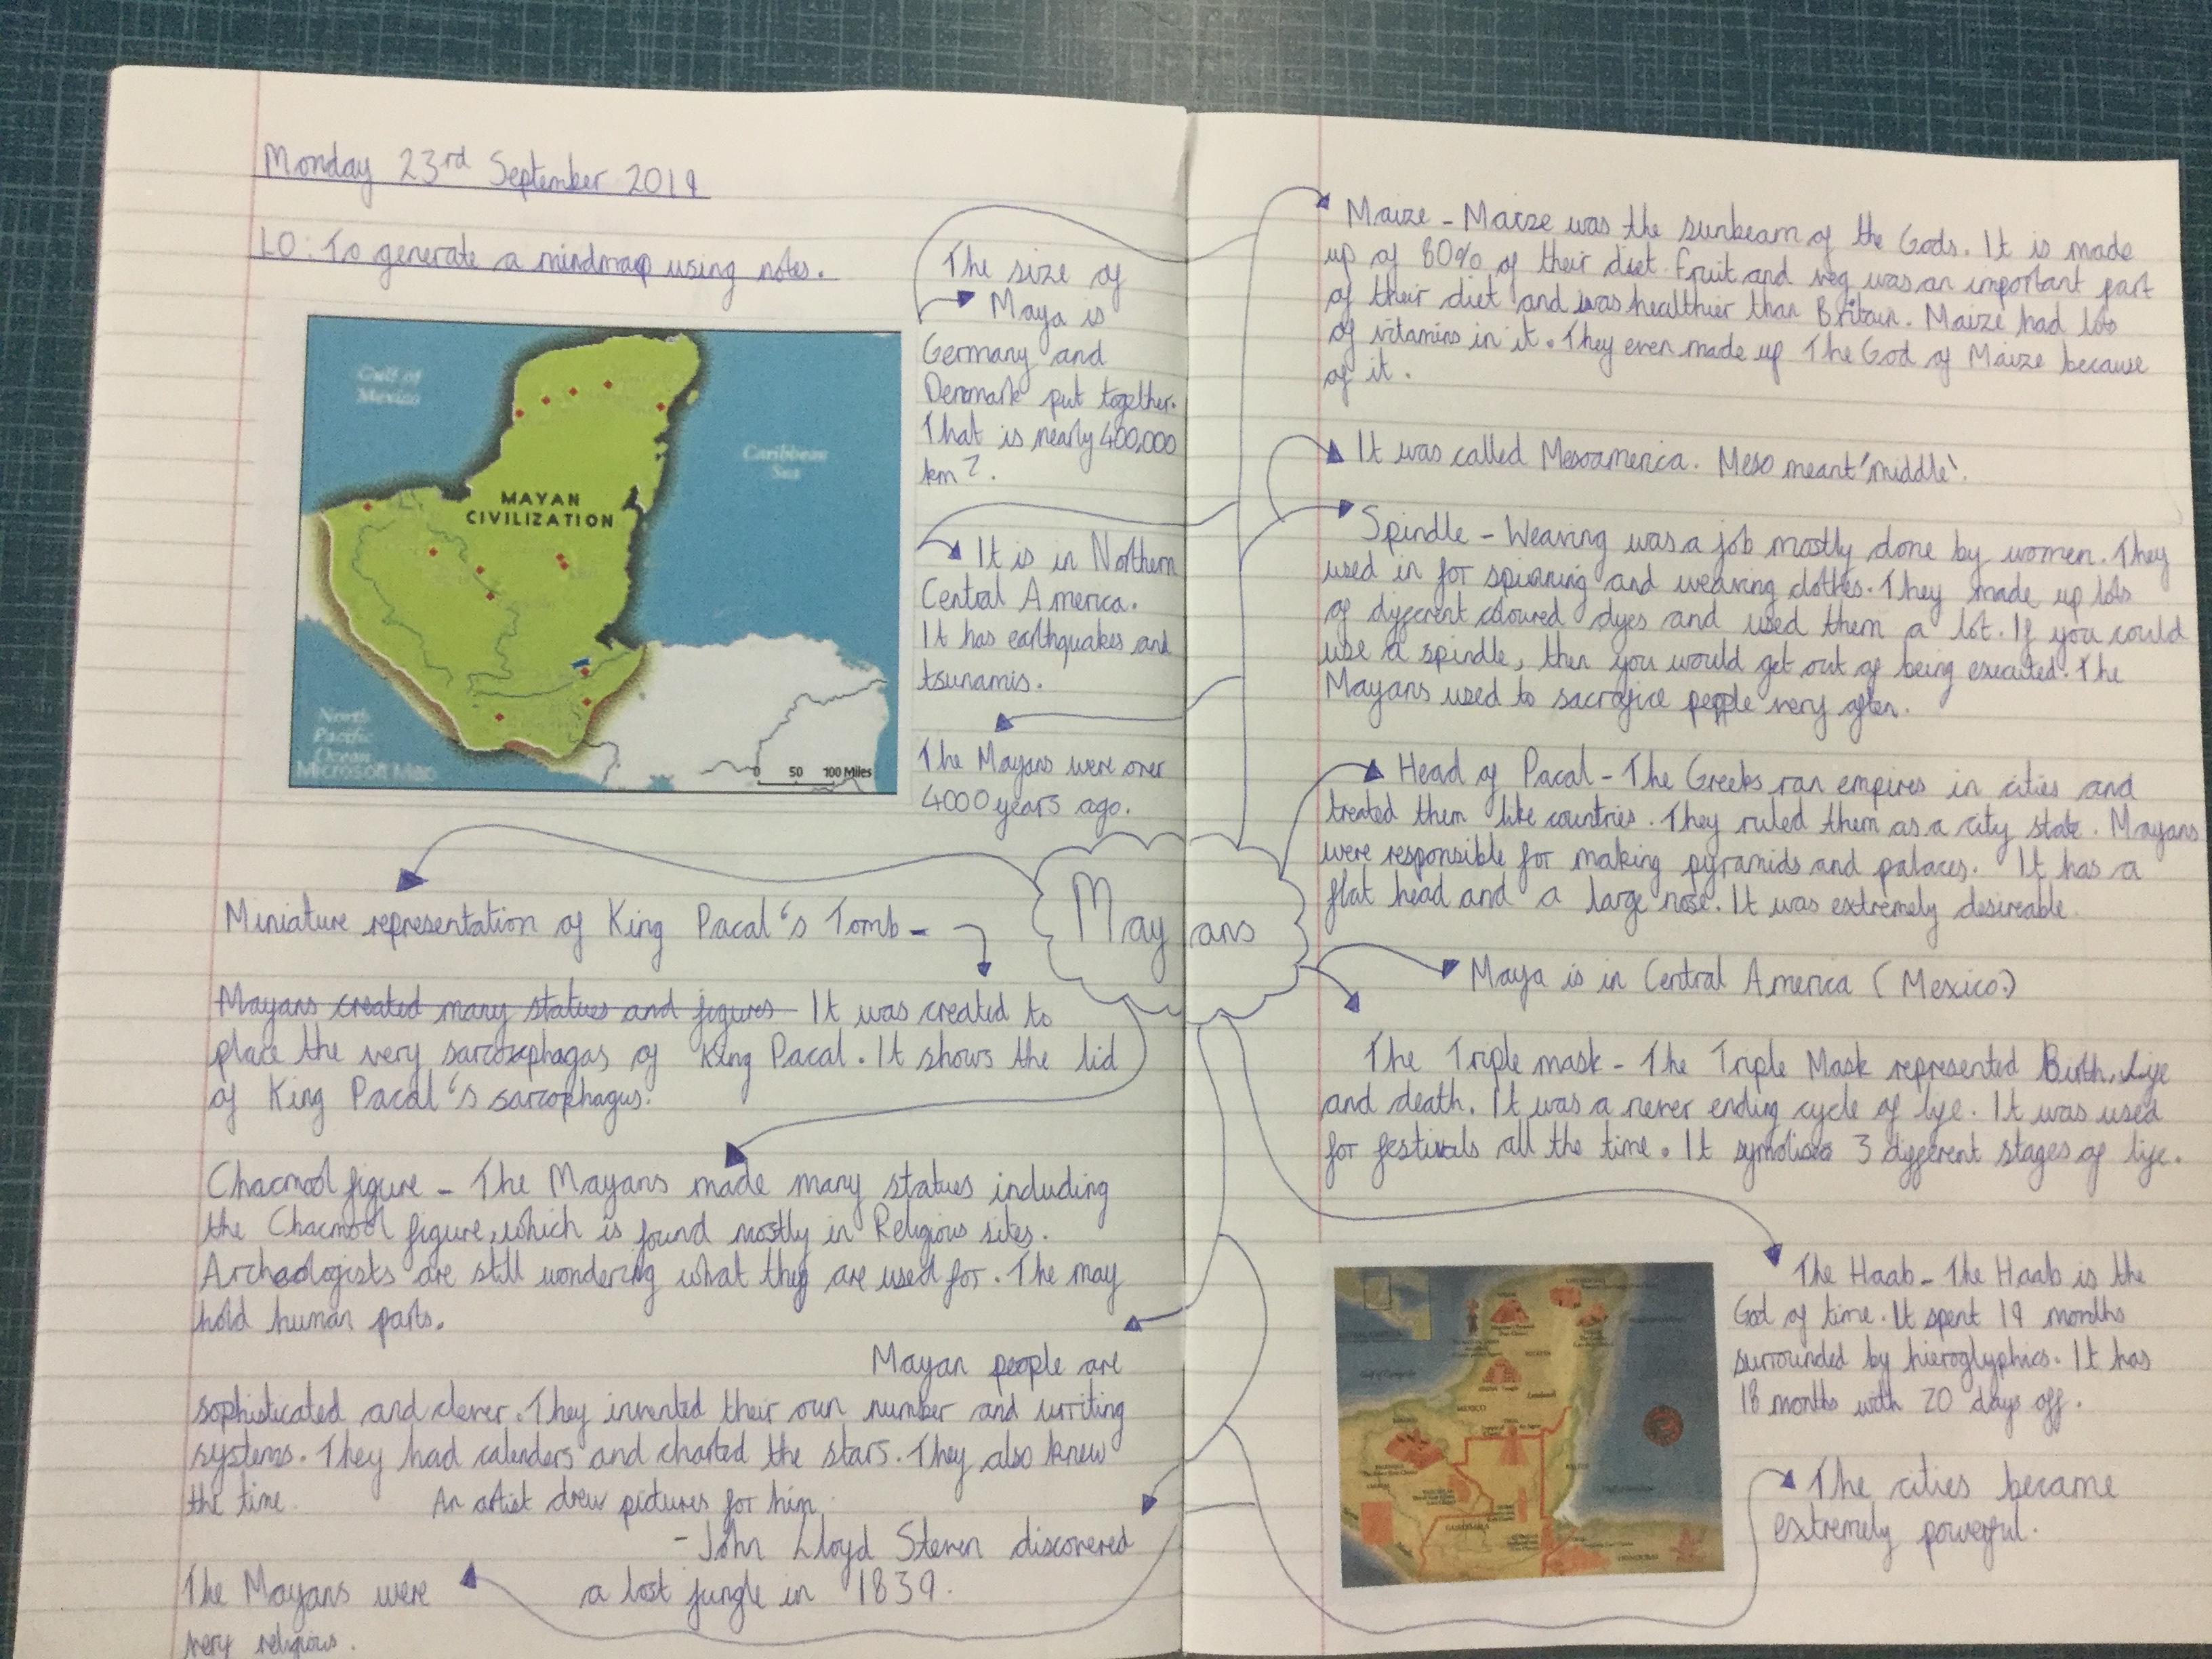 Monday 23rd September 2019
LO: To generate a mindmap using notes.
Gulf of
Mexico
Caribbean
Sea
MAYAN
CIVILIZATION
North
Pacific
Ocean
Microsoft Map
0 50 100 Miles
The size of
Maya is
Germany and
Denmark put together.
That is nearly 400,000
km2.
It is in Northern
Central America.
It has earthquakes and
tsunamis.
The Mayans were over
4000 years ago.
Mayans
Miniature representation of King Pacal's Tomb -
Mayans created many statues and figures It was created to
place the very sarcosophagas of King Pacal. It shows the lid
of King Pacal's sarcophagus.
Chacmool figure - The Mayans made many statues including
the Chacmool figure, which is found mostly in Religious sites.
Archaologists are still wondering what they are used for. The may
hold human parts.
Mayan people are
sophisticated and clever. They invented their own number and writing
systems. They had calenders and charted the stars. They also knew
the time.
An artist drew pictures for him.
- John Lloyd Steven discovered
a lost jungle in 1839.
The Mayans were
very religious.
Maize - Maize was the sunbeam of the Gods. It is made
up of 80% of their diet. Fruit and veg was an important part
of their diet and was healthier than Britain. Maize had lots
of vitamins in it. They even made up The God of Maize because
of it.
It was called Mesoamerica. Meso meant 'middle'.
Spindle - Weaving was a job mostly done by women. They
used in for spinning and weaving clothes. They made up lots
of different coloured dyes and used them a lot. If you could
use a spindle, then you would get out of being executed. The
Mayans used to sacrafice people very often.
Head of Pacal - The Greeks ran empires in cities and
treated them like countries. They ruled them as a city state. Mayans
were responsible for making pyramids and palaces. It has a
flat head and a large nose. It was extremely desireable.
Maya is in Central America (Mexico.)
The Triple mask - The Triple Mask represented Birth, Life
and death. It was a never ending cycle of life. It was used
for festivals all the time. It 3 different stages of life.
The Haab - The Haab is the
God of time. It spent 19 months
surrounded by hieroglyphics. It has
18 months with 20 days off.
MEXICO
GUATEMALA
The cities became
extremely powerful.